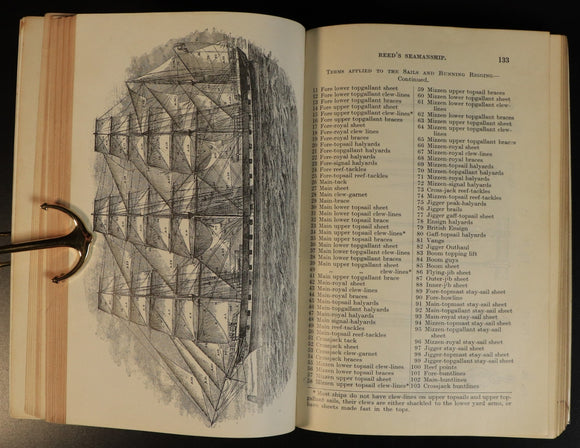 REED'S SEAMANSHIP. 133
TERMS APPLIED TO THE SAILS AND RUNNING RIGGING—
Continued.
Fore lower topgallant sheet
Fore lower topgallant clew-lines
Fore lower topgallant braces
Fore upper topgallant sheet
Fore upper topgallant clew-lines*
Fore upper topgallant braces
Fore-royal sheet
Fore-royal clew lines
Fore-royal braces
Fore-topsail halyards
Fore-topgallant halyards
Fore-royal halyards
Fore-signal halyards
Fore reef-tackles
Fore-topsail reef-tackles
Main-tack
Main sheet
Main clew-garnet
Main-brace
Main lower topsail sheet
Main lower topsail clew-lines
Main lower topsail brace
Main upper topsail sheet
Main upper topsail clew-lines*
Main upper topsail braces
Main lower topgallant sheet
Main lower topgallant clew-lines
Main lower topgallant braces
Main upper topgallant sheet
clew-lines*
Main upper topgallant brace
Main-royal sheet
Main-royal clew-lines
Main-royal braces
Main-topsail halyards
Main-topgallant halyards
Main-royal halyards
Main-signal halyards
Main reef-tackles
Main-topsail reef-tackles
Crossjack tack
Crossjack sheet
Crossjack clew-garnet
Crossjack braces
Mizzen lower topsail sheet
Mizzen lower topsail clew-lines
Mizzen lower topsail braces
Mizzen upper topsail sheet
Mizzen upper topsail clew-lines*
59 Mizzen upper topsail braces
60 Mizzen lower topgallant sheet
61 Mizzen lower topgallant clew-
lines
62 Mizzen lower topgallant braces
63 Mizzen upper topgallant sheet
64 Mizzen upper topgallant clew-
lines
65 Mizzen upper topgallant braces
66 Mizzen-royal sheet
67 Mizzen-royal clew-lines
68 Mizzen-royal braces
69 Mizzen-topsail halyards
70 Mizzen-topgallant halyards
71 Mizzen-royal halyards
72 Mizzen-signal halyards
73 Cross-jack reef-tackles
74 Mizzen-topsail reef-tackles
75 Jigger peak-halyards
76 Jigger brails
77 Jigger gaff-topsail sheet
78 Ensign halyards
79 British Ensign
80 Gaff-topsail halyards
81 Vangs
82 Jigger Outhaul
83 Boom topping lift
84 Boom guys
85 Boom sheet
86 Flying-jib sheet
87 Outer-jib sheet
88 Inner-jib sheet
89 Fore-topmast stay-sail sheet
90 Fore-bowline
91 Main-topmast stay-sail sheet
92 Main-topgallant stay-sail sheet
93 Main-royal stay-sail sheet
94 Mizzen-topmast stay-sail sheet
95 Mizzen-topgallant stay-sail
sheet
96 Mizzen-royal stay-sail sheet
97 Jigger stay-sail sheet
98 Jigger-topmast stay-sail sheet
99 Jigger-topgallant stay-sail sheet
100 Reef points
101 Fore-buntlines
102 Main-buntlines
103 Crossjack buntlines
* Most ships do not have clew-lines on upper topsails and upper top-
gallant sails, their clews are either shackled to the lower yard arms, or
have sheets made fast in the tops.